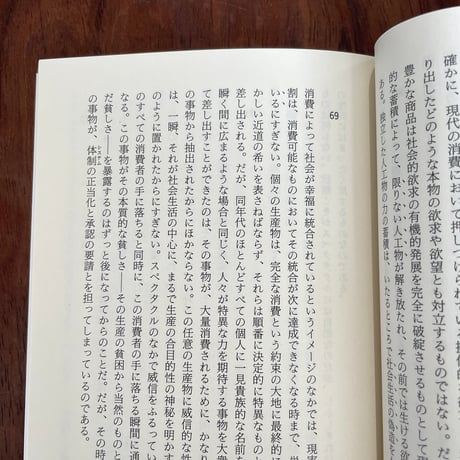 確かに、現代の消費において押しつけられ
り出したどのような本物の欲求や欲望とも対立するものではない。
豊かな商品は社会的欲求の有機的発展を完全に破綻させるものとして
的な蓄積によって、限りない人工物が解き放たれ、その前では生ける欲
ある。独立した人工物の力の蓄積は、いたるところで社会生活の偽造を
69
消費によって社会が幸福に統合されているというイメージのなかでは、現実
割は、消費可能なものにおいてその統合が次に達成できなくなる時まで、単
いるにすぎない。個々の生産物は、完全な消費という約束の大地に最終的に
かしい近道の希いを表さねばならず、それらは順番に決定的に特異なものと
差し出される。だが、同年代のほとんどすべての個人に一見貴族的な名前を
瞬く間に広まるような場合と同じく、人々が特異な力を期待する事物を大衆
て差し出すことができたのは、その事物が、大量消費されるために、かなり
の事物から抽出されたからにほかならない。この任意の生産物に威信的な性
は、一瞬、それが社会生活の中心に、まるで生産の合目的性の神秘を明かす
のように置かれたからにすぎない。スペクタクルのなかで威信をふるってい
のすべての消費者の手に落ちると同時に、この消費者の手に落ちる瞬間に通
なる。この事物がその本質的な貧しさ——その生産の貧困から当然のものと
だ貧しさ——を暴露するのはずっと後になってからのことだ。だが、その時
の事物が、体制の正当化と承認の要請とを担ってしまっているのである。